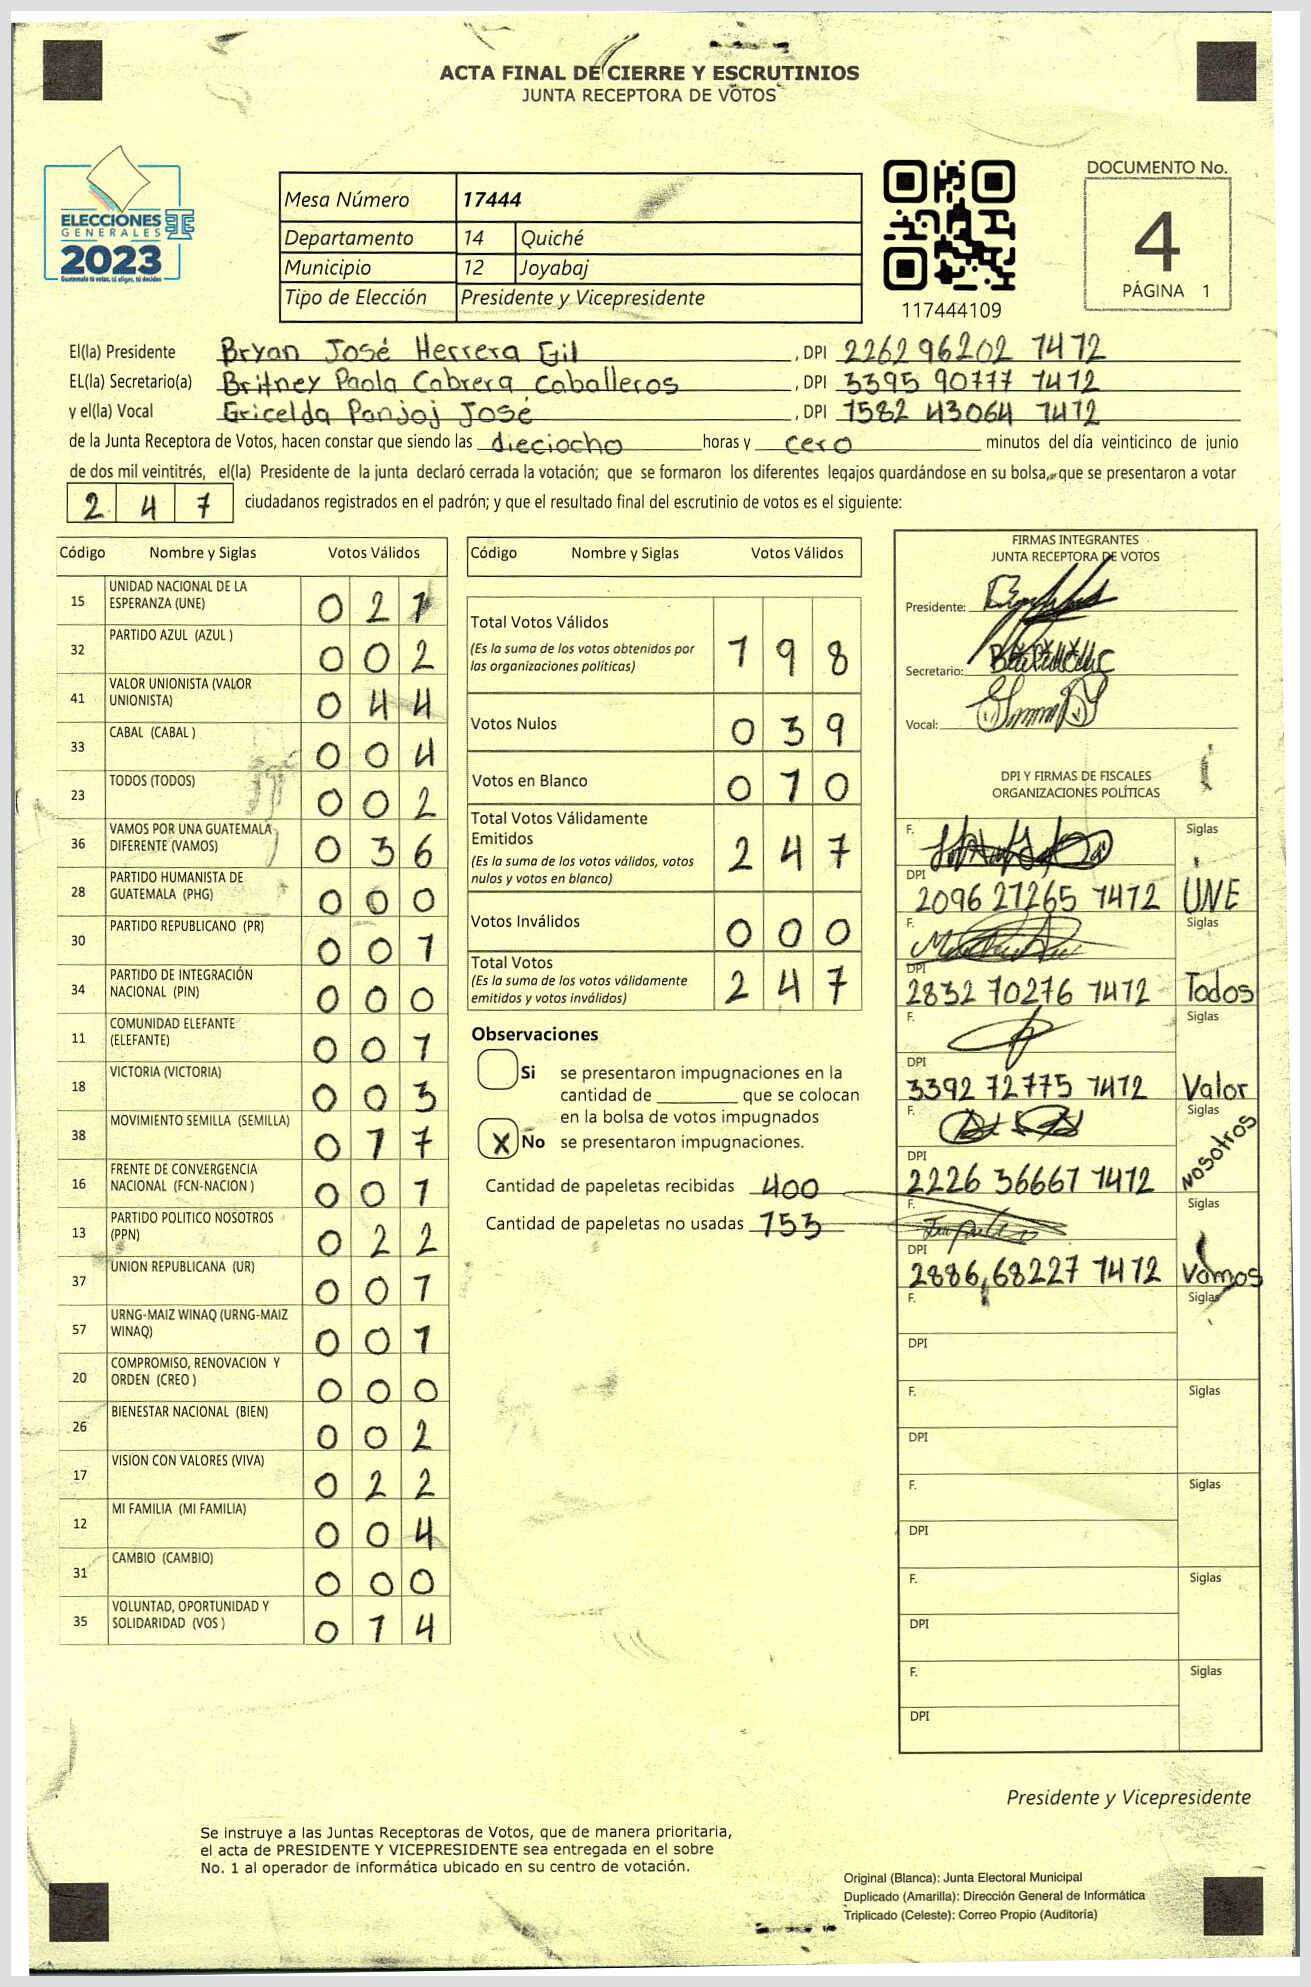 ACTA FINAL DE CIERRE Y ESCRUTINIOS
JUNTA RECEPTORA DE VOTOS
ELECCIONES
GENERALES
2023
Guatemala tú votas, tú eliges, tú decides
Mesa Número 17444
Departamento 14 Quiché
Municipio 12 Joyabaj
Tipo de Elección Presidente y Vicepresidente
117444109
DOCUMENTO No.
4
PÁGINA 1
El(la) Presidente Bryan José Herrera Gil , DPI 2262 96202 1412
EL(la) Secretario(a) Britney Paola Cabrera Caballeros , DPI 3395 90777 1412
y el(la) Vocal Gricelda Panjoj José , DPI 1582 43064 1412
de la Junta Receptora de Votos, hacen constar que siendo las dieciocho horas y cero minutos del día veinticinco de junio
de dos mil veintitrés, el(la) Presidente de la junta declaró cerrada la votación; que se formaron los diferentes legajos quardándose en su bolsa, que se presentaron a votar
2 4 7 ciudadanos registrados en el padrón; y que el resultado final del escrutinio de votos es el siguiente:
Código Nombre y Siglas Votos Válidos
15 UNIDAD NACIONAL DE LA ESPERANZA (UNE) 0 2 1
32 PARTIDO AZUL (AZUL ) 0 0 2
41 VALOR UNIONISTA (VALOR UNIONISTA) 0 4 4
33 CABAL (CABAL ) 0 0 4
23 TODOS (TODOS) 0 0 2
36 VAMOS POR UNA GUATEMALA DIFERENTE (VAMOS) 0 3 6
28 PARTIDO HUMANISTA DE GUATEMALA (PHG) 0 0 0
30 PARTIDO REPUBLICANO (PR) 0 0 1
34 PARTIDO DE INTEGRACIÓN NACIONAL (PIN) 0 0 0
11 COMUNIDAD ELEFANTE (ELEFANTE) 0 0 1
18 VICTORIA (VICTORIA) 0 0 3
38 MOVIMIENTO SEMILLA (SEMILLA) 0 1 7
16 FRENTE DE CONVERGENCIA NACIONAL (FCN-NACION ) 0 0 1
13 PARTIDO POLITICO NOSOTROS (PPN) 0 2 2
37 UNION REPUBLICANA (UR) 0 0 1
57 URNG-MAIZ WINAQ (URNG-MAIZ WINAQ) 0 0 1
20 COMPROMISO, RENOVACION Y ORDEN (CREO ) 0 0 0
26 BIENESTAR NACIONAL (BIEN) 0 0 2
17 VISION CON VALORES (VIVA) 0 2 2
12 MI FAMILIA (MI FAMILIA) 0 0 4
31 CAMBIO (CAMBIO) 0 0 0
35 VOLUNTAD, OPORTUNIDAD Y SOLIDARIDAD (VOS ) 0 1 4
Código Nombre y Siglas Votos Válidos
Total Votos Válidos 1 9 8
(Es la suma de los votos obtenidos por
las organizaciones políticas)
Votos Nulos 0 3 9
Votos en Blanco 0 1 0
Total Votos Válidamente
Emitidos 2 4 7
(Es la suma de los votos válidos, votos
nulos y votos en blanco)
Votos Inválidos 0 0 0
Total Votos 2 4 7
(Es la suma de los votos válidamente
emitidos y votos inválidos)
Observaciones
Si se presentaron impugnaciones en la
cantidad de ________ que se colocan
en la bolsa de votos impugnados
X No se presentaron impugnaciones.
Cantidad de papeletas recibidas 400
Cantidad de papeletas no usadas 153
FIRMAS INTEGRANTES
JUNTA RECEPTORA DE VOTOS
Presidente:
Secretario:
Vocal:
DPI Y FIRMAS DE FISCALES
ORGANIZACIONES POLÍTICAS
F. Siglas
DPI 2096 27265 1412 UNE
F. Siglas
DPI 2832 70276 1412 Todos
F. Siglas
DPI 3392 72775 1412 Valor
F. Siglas
DPI 2226 36667 1412 Nosotros
F. Siglas
DPI 2886,68227 1412 Vamos
F. Siglas
DPI
F. Siglas
DPI
F. Siglas
DPI
F. Siglas
DPI
F. Siglas
DPI
Presidente y Vicepresidente
Se instruye a las Juntas Receptoras de Votos, que de manera prioritaria,
el acta de PRESIDENTE Y VICEPRESIDENTE sea entregada en el sobre
No. 1 al operador de informática ubicado en su centro de votación.
Original (Blanca): Junta Electoral Municipal
Duplicado (Amarilla): Dirección General de Informática
Triplicado (Celeste): Correo Propio (Auditoria)